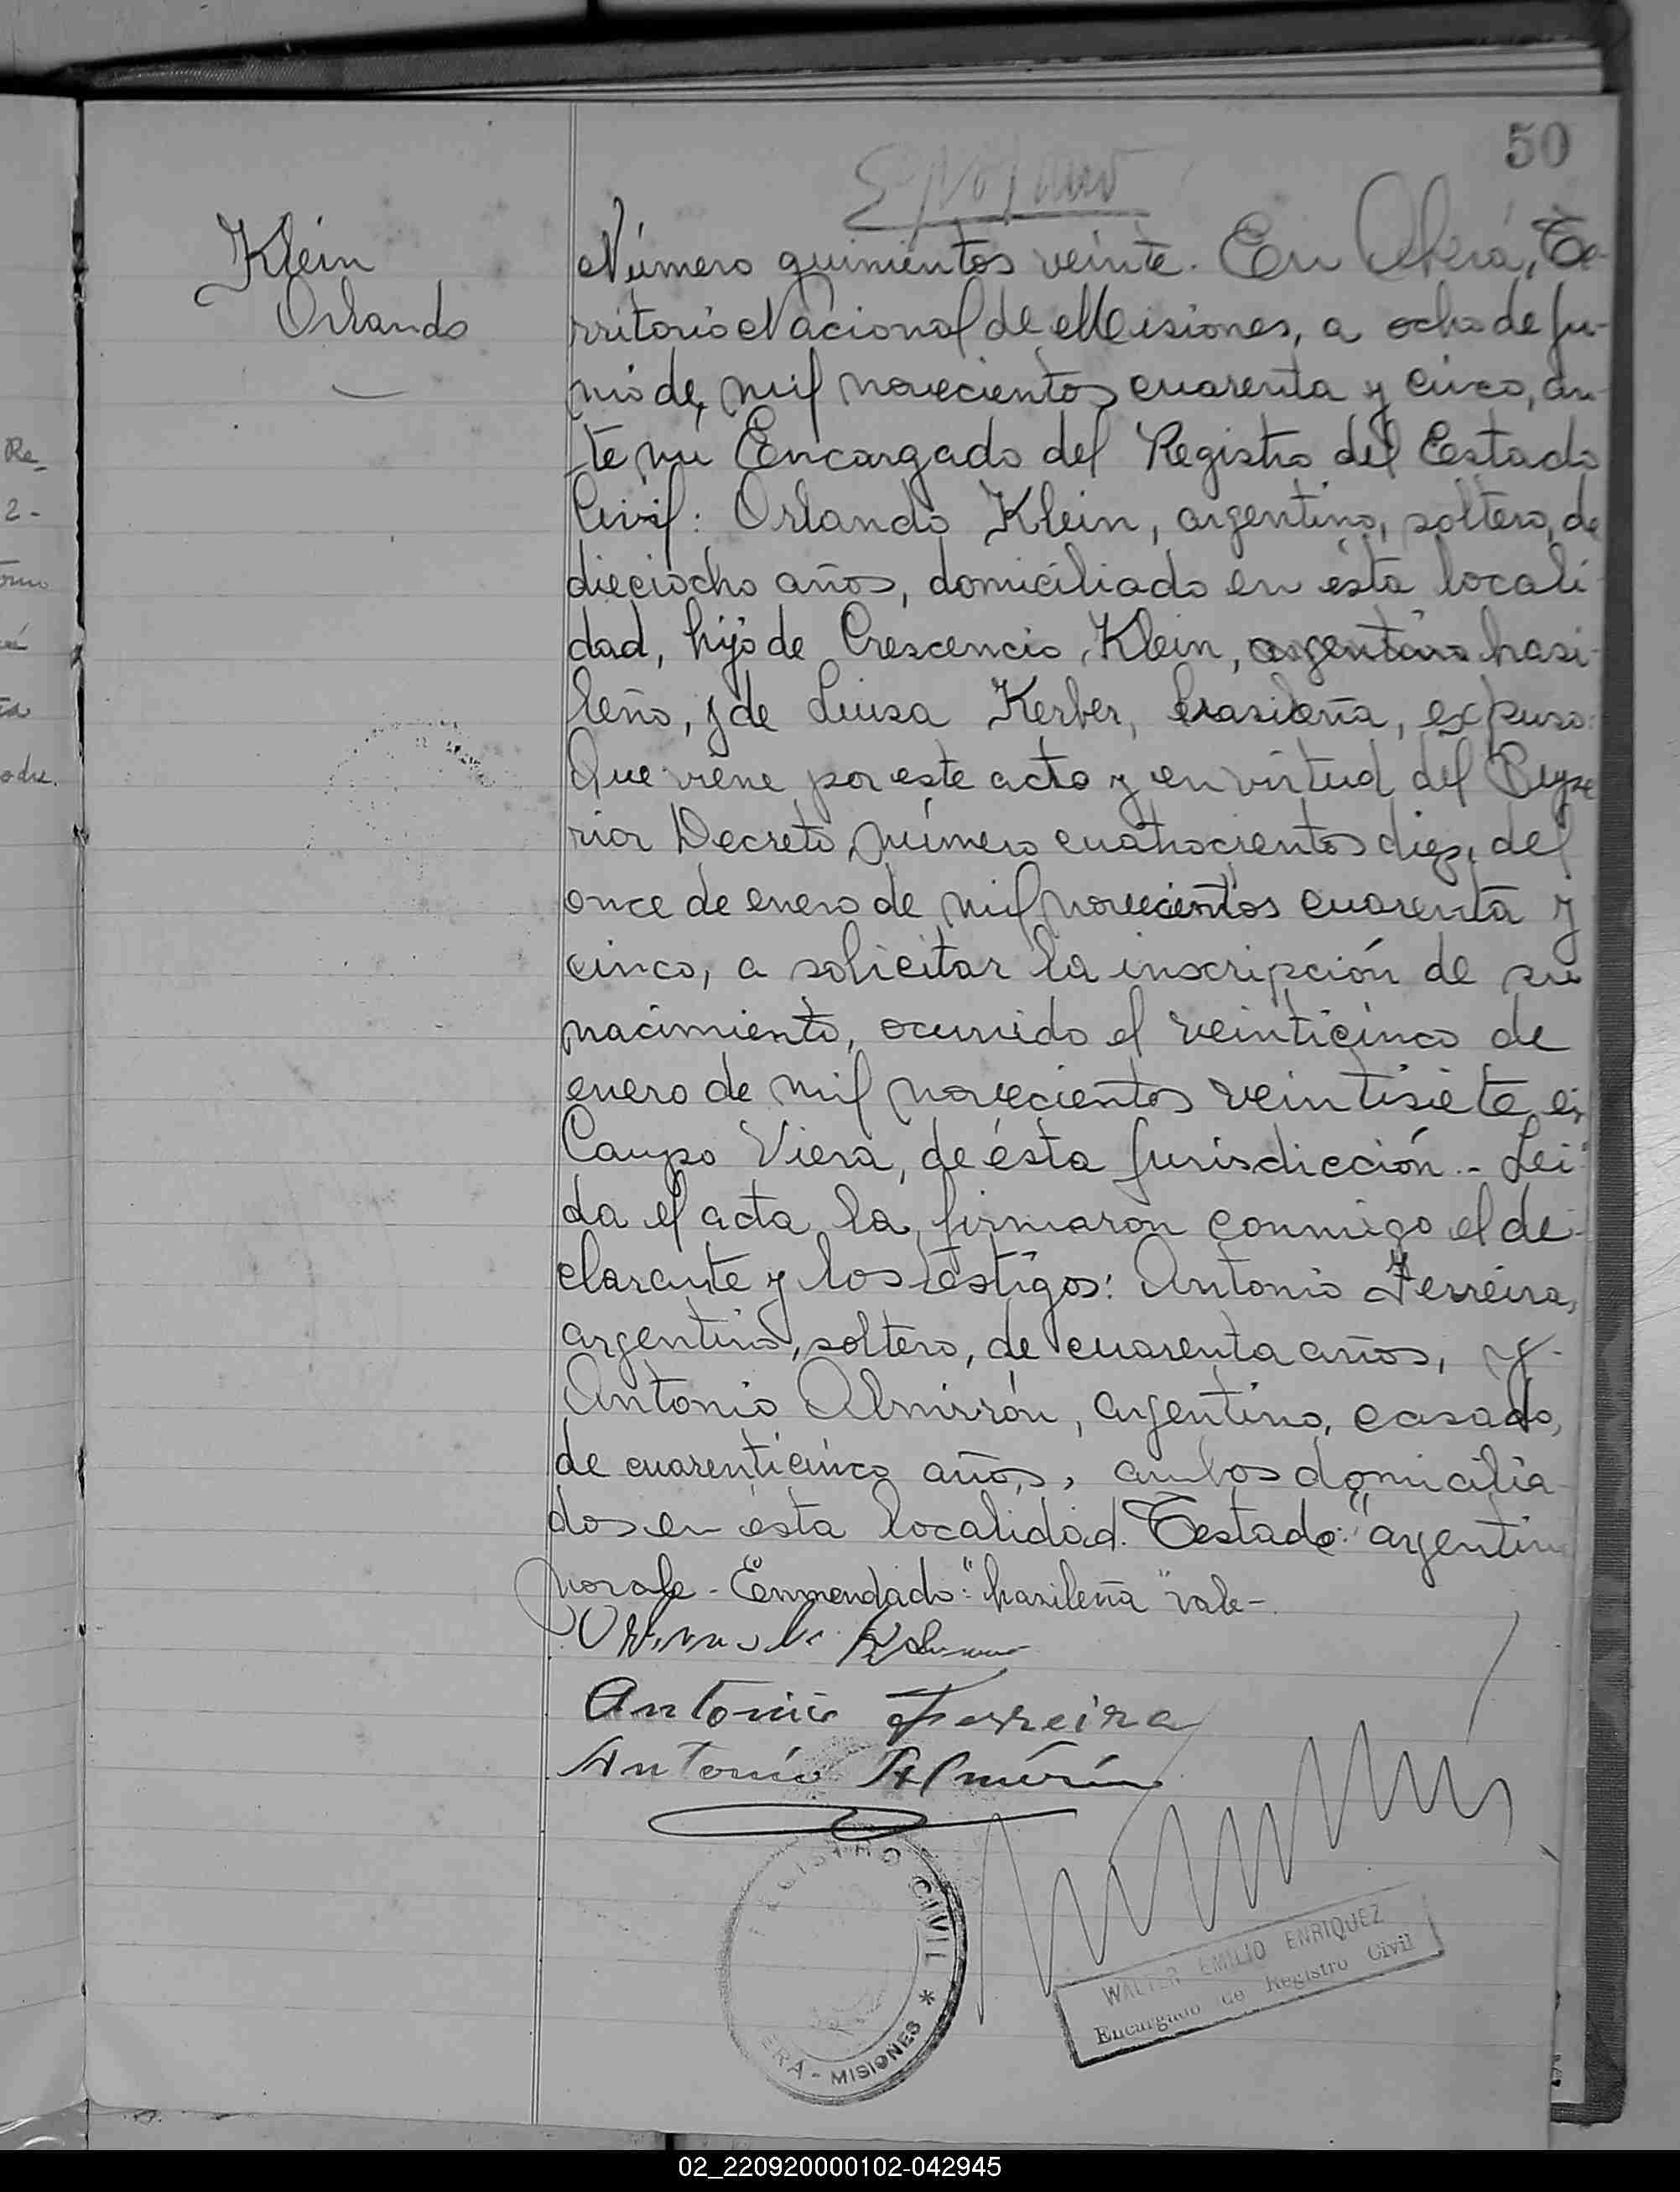 50
Klein
Orlando
Número quinientos veinte. En Oberá, Te-
rritorio Nacional de Misiones, a ocho de Ju-
nio de mil novecientos cuarenta y cinco, an-
te mí Encargado del Registro del Estado
Civil: Orlando Klein, argentino, soltero, de
dieciocho años, domiciliado en ésta locali-
dad, hijo de Crescencio Klein, argentino brasi-
leño, y de Luisa Kerber, brasileña, expuso:
Que viene por este acto y en virtud del Supe
rior Decreto número cuatrocientos diez, del
once de enero de mil novecientos cuarenta y
cinco, a solicitar la inscripción de su
nacimiento, ocurrido el veinticinco de
enero de mil novecientos veintisiete en
Campo Viera, de ésta Jurisdicción.- Leí-
da el acta la firmaron conmigo el de-
clarante y los testigos: Antonio Ferreira,
argentino, soltero, de cuarenta años, y-
Antonio Almirón, argentino, casado,
de cuarenticinco años, ambos domicilia-
dos en ésta localidad. Testado: "argentino
no vale - Enmendado: "brasileña" vale-
Antonio Ferreira
Antonio Almirón
REGISTRO CIVIL * ERÁ - MISIONES
WALTER EMILIO ENRIQUEZ
Encargado de Registro Civil
Re-
2-
odre.
02_220920000102-042945